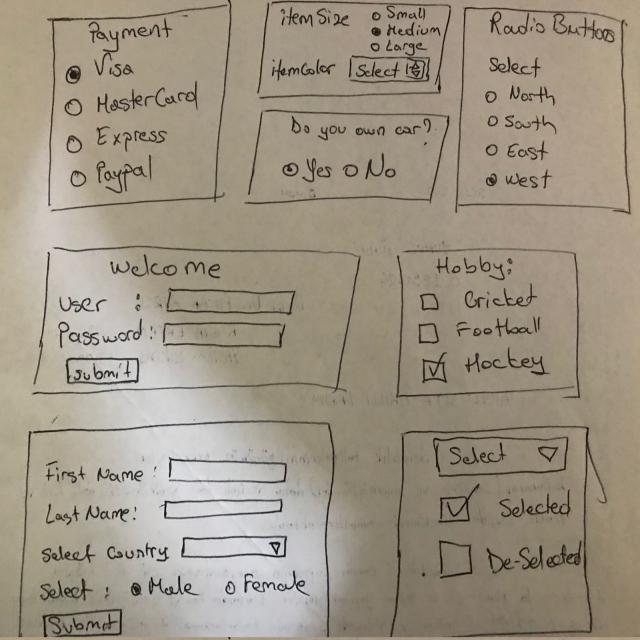 Payment
Visa
MasterCard
Express
Paypal
itemSize
Small
Medium
Large
itemColor
Select
Do you own car?
Yes No
Radio Buttons
Select
North
South
East
West
Welcome
User :
Password :
Submit
Hobby:
Cricket
Football
Hockey
First Name :
Last Name:
Select Country
Select : Male Female
Submit
Select
Selected
De-Selected